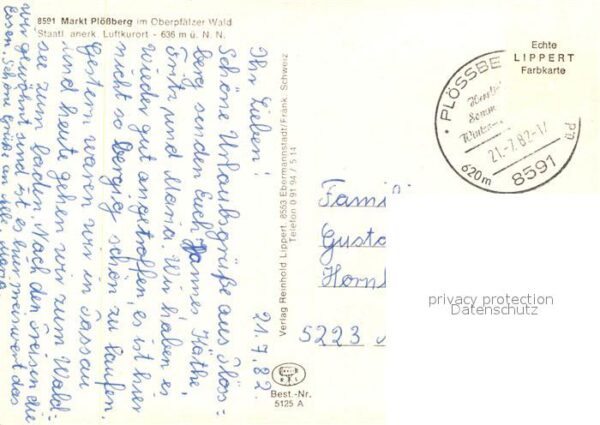 8591 Markt Plößberg im Oberpfälzer Wald
Staatl. anerk. Luftkurort - 636 m ü. N. N.
21.7.82.
Ihr Lieben!
Schöne Urlaubsgrüße aus Plöss=
berg senden Euch Hanne, Käthe,
Fritz und Maria. Wir haben es
wieder gut angetroffen, es ist hier
nicht so bergig schön zu laufen.
Gestern waren wir in Passau
und heute gehen wir zum Wald=
see zum baden. Nach den Preisen die
wir gewöhnt sind ist es hier preiswert das
Essen. Schöne Grüße an alle, Maria.
Verlag Reinhold Lippert, 8553 Ebermannstadt/Fränk. Schweiz
Telefon 0 91 94 / 5 14
Best.-Nr.
5125 A
Echte
LIPPERT
Farbkarte
PLÖSSBE
21.-7.82-17
620m
8591
Famil
Gusta
5223
privacy protection
Datenschutz